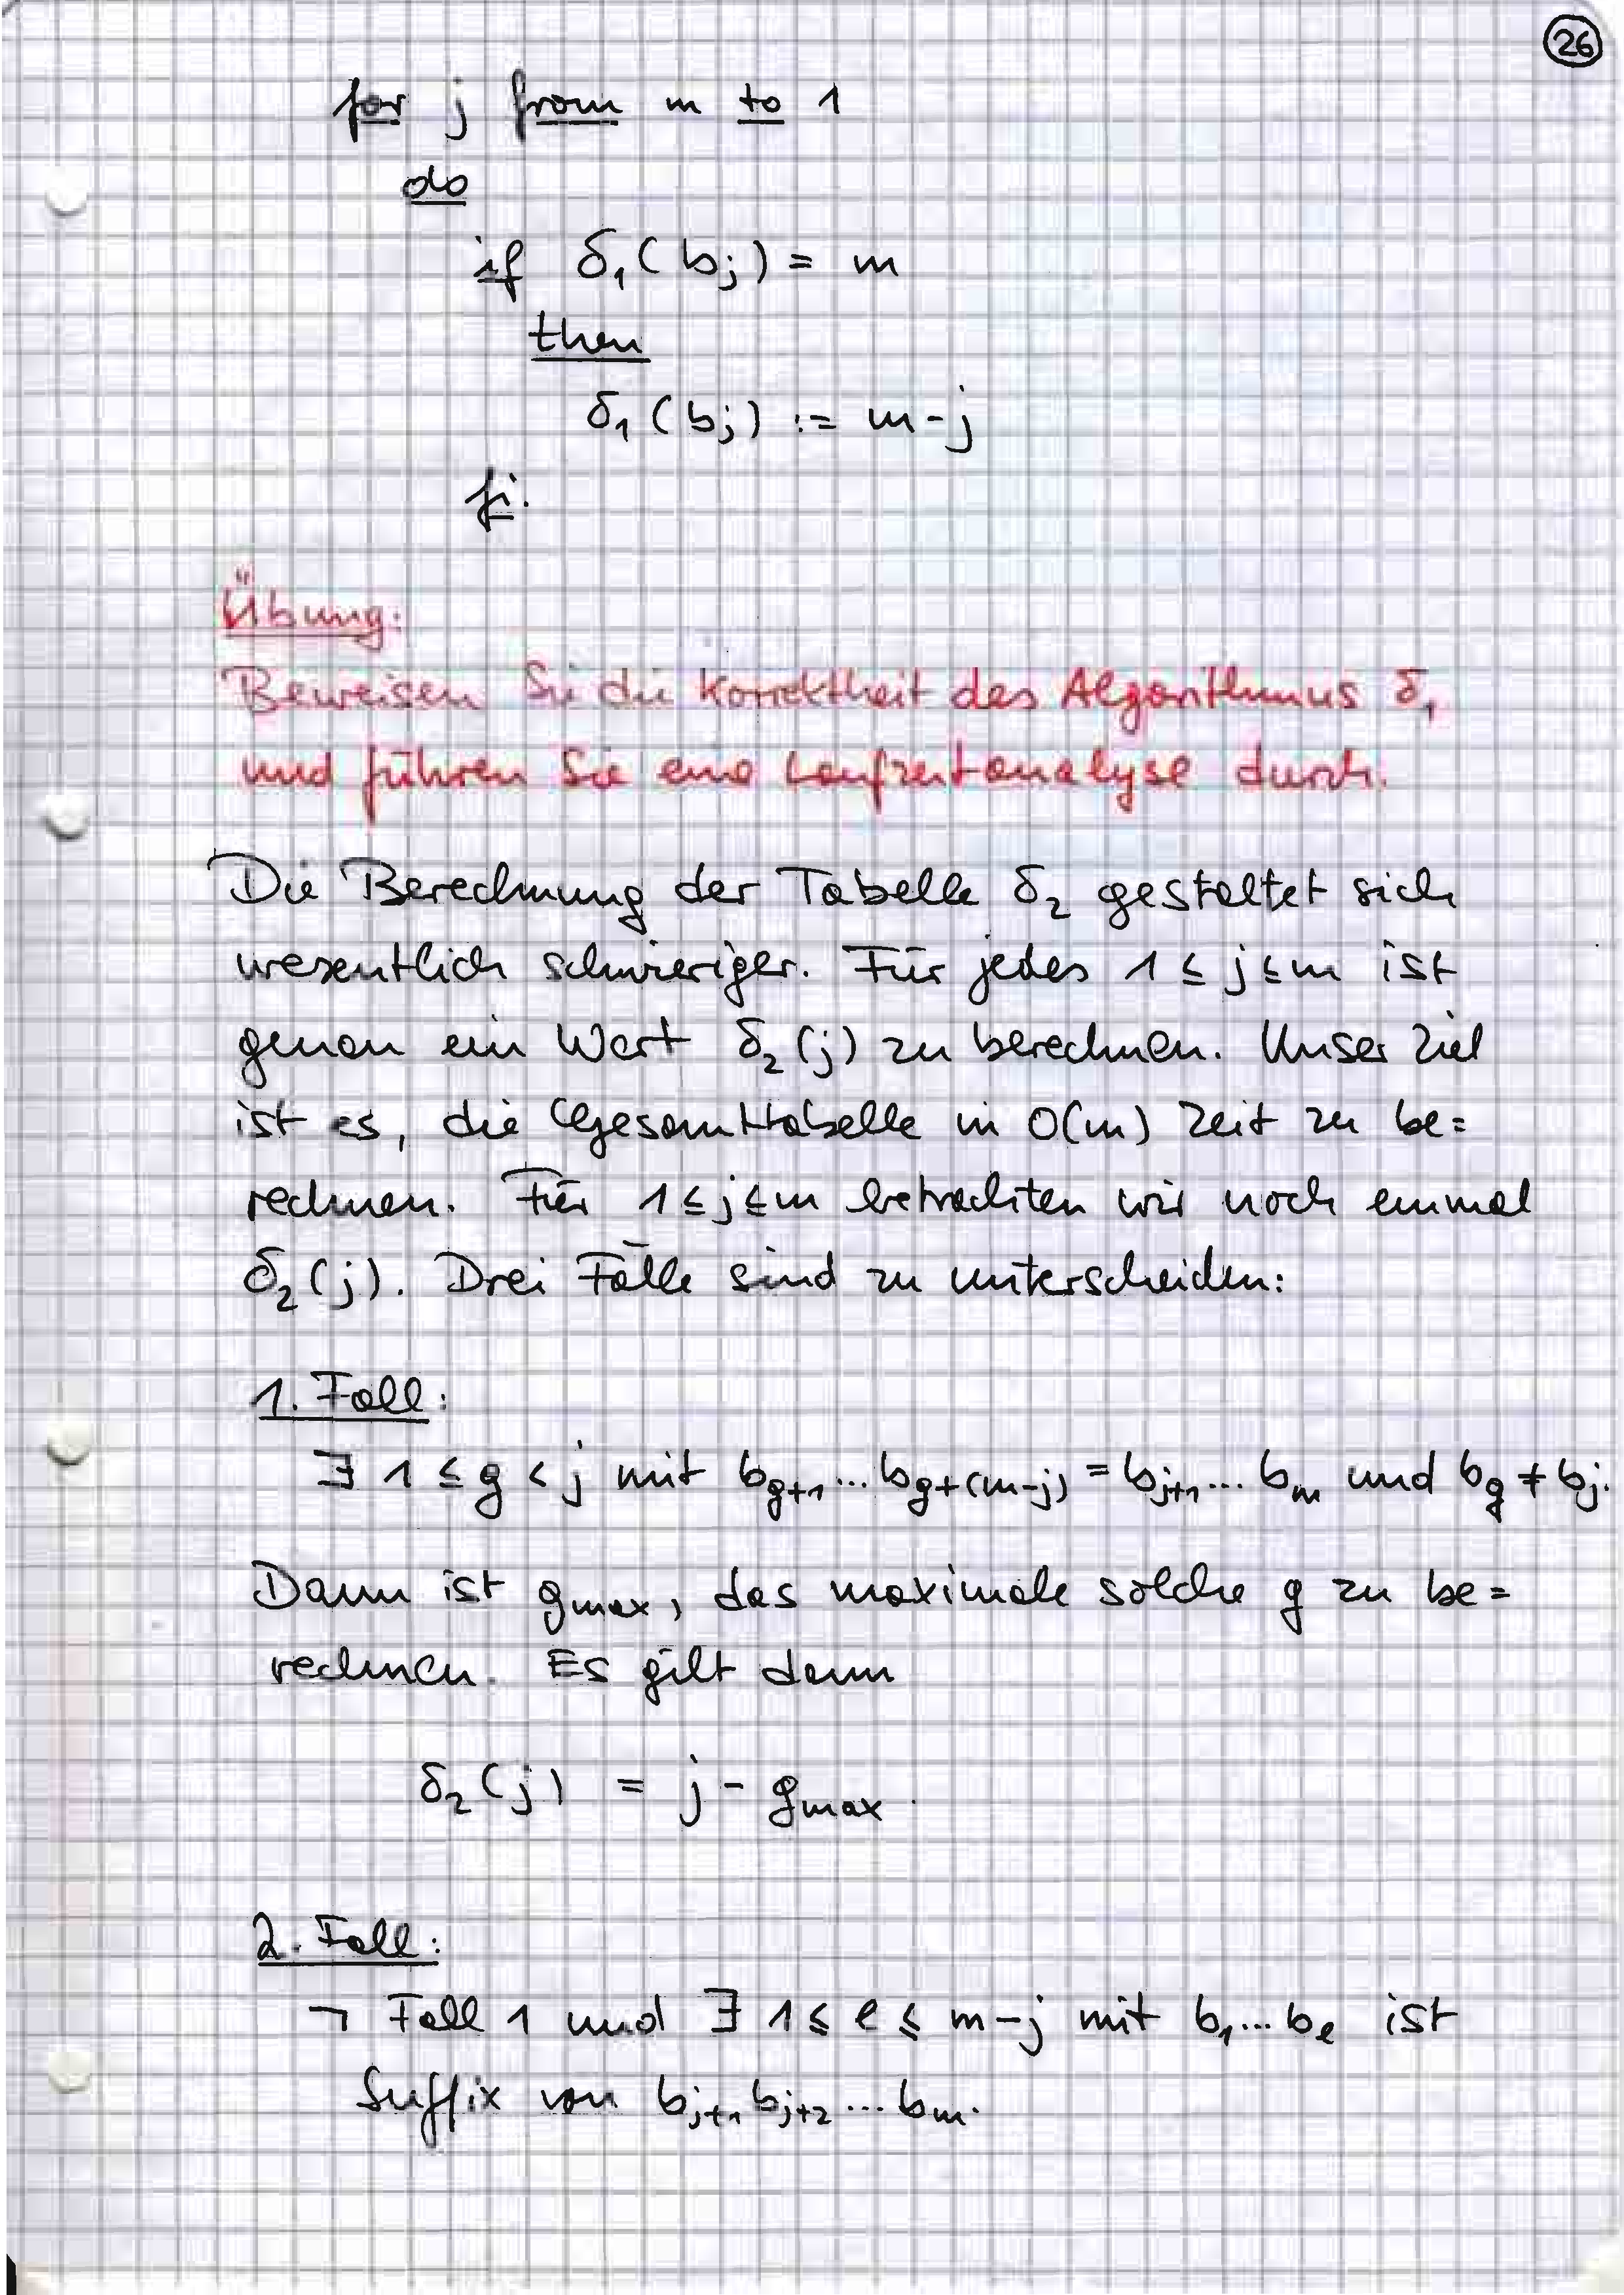 26
for j from m to 1
do
if δ₁(bⱼ) = m
then
δ₁(bⱼ) := m-j
fi.
Übung:
Beweisen Sie die Korrektheit des Algorithmus δ₁
und führen Sie eine Laufzeitanalyse durch.
Die Berechnung der Tabelle δ₂ gestaltet sich
wesentlich schwieriger. Für jedes 1 ≤ j ≤ m ist
genau ein Wert δ₂(j) zu berechnen. Unser Ziel
ist es, die Gesamttabelle in O(m) Zeit zu be=
rechnen. Für 1 ≤ j ≤ m betrachten wir noch einmal
δ₂(j). Drei Fälle sind zu unterscheiden:
1. Fall:
∃ 1 ≤ g < j mit b_{g+1}...b_{g+(m-j)} = b_{j+1}...b_m und b_g ≠ b_j.
Dann ist g_max, das maximale solche g zu be=
rechnen. Es gilt dann
δ₂(j) = j - g_max.
2. Fall:
¬ Fall 1 und ∃ 1 ≤ l ≤ m-j mit b₁...b_l ist
Suffix von b_{j+1}b_{j+2}...b_m.